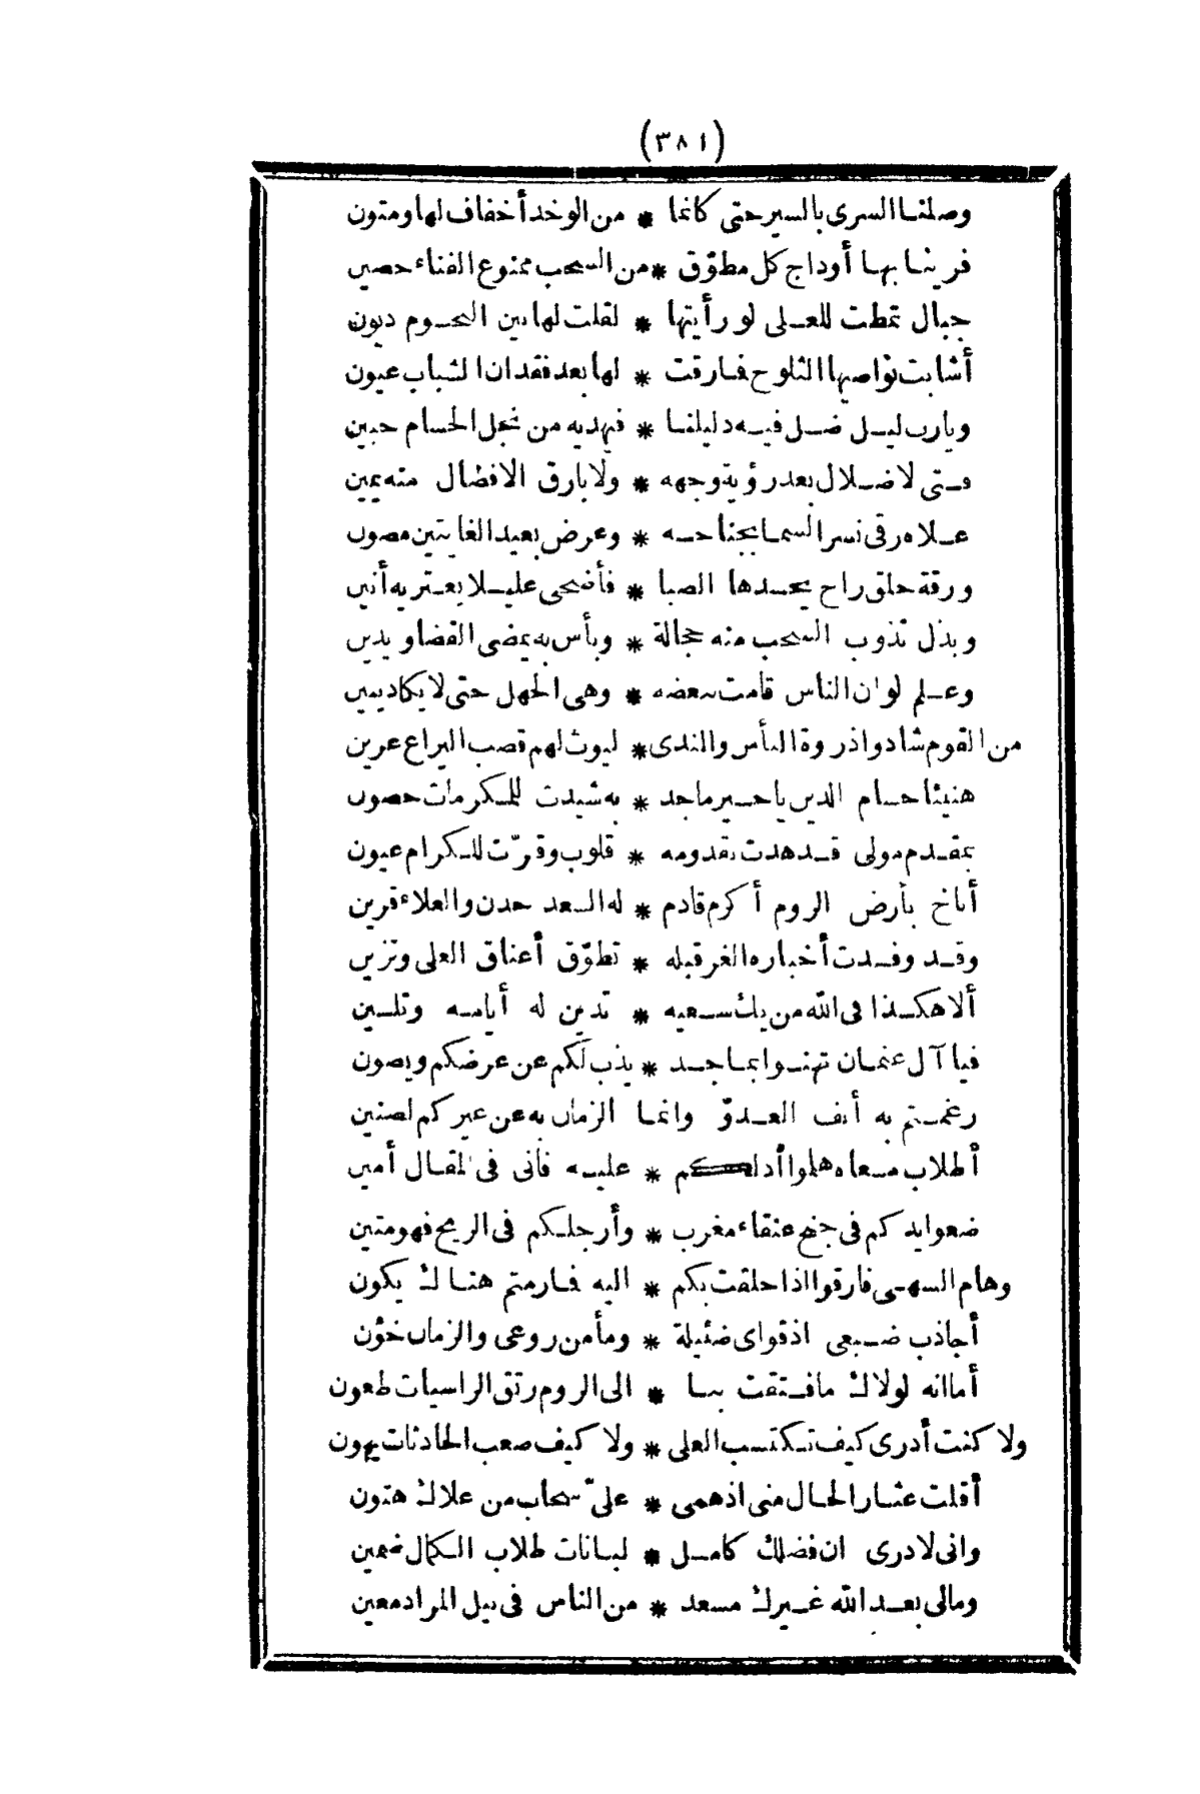 (٣٨١)
وصلنا السرى بالسير حتى كانما * من الوخد أخفاف لها ومتون
فرينا بها أوداج كل مطوّق * من السحب ممنوع الفناء حصين
جبال تمطت للعلى لو رأيتها * لقلت لها بين النجوم ديون
أشابت نواصيها الثلوح فارقت * لها بعد فقدان الشباب عيون
ويارب ليل ضل فيه دليلنا * فيهديه من نجل الحسام جبين
فتى لا ضلال بعد رؤية وجهه * ولا بارق الافضال منه يمين
علاه رقى نسر السما بجناحه * وعرض بعيد الغايتين مصون
ورقة خلق راح يحسدها الصبا * فأضحى عليلا يعتريه أنين
وبذل تذوب السحب منه خجالة * وبأس به يمضى القضا ويدين
وعلم لو ان الناس قامت ببعضه * وهى الجهل حتى لا يكاد يبين
من القوم شادوا ذروة البأس والندى * ليوث لهم قصب اليراع عرين
هنيئا حسام الدين يا خير ماجد * به شيدت للمكرمات حصون
بمقدم مولى قد هدت بقدومه * قلوب وقرّت للكرام عيون
أناخ بأرض الروم أكرم قادم * له السعد خدن والعلاء قرين
وقد وفدت أخباره الغر قبله * تطوّق أعناق العلى وتزين
ألا هكذا فى الله من يك سعيه * تدين له أيامه وتلين
فيا آل عثمان تهنوا بماجد * يذب لكم عن عرضكم ويصون
رغمتم به أنف العدوّ وانما الزمان به عن غيركم لضنين
أطلاب مسعاه هلموا أدلكم * عليه فانى فى المقال أمين
ضعوا يدكم فى جنح عنقاء مغرب * وأرجلكم فى الريح فهو متين
وهام السهى فارقوا اذا حلقت بكم * اليه فما رمتم هناك يكون
أجاذب ضبعى اذ قواى ضئيلة * ومأمن روعى والزمان خؤن
أما انه لولاك ما فتقت بنا * الى الروم رتق الراسيات ظعون
ولا كنت أدرى كيف تكتسب العلى * ولا كيف صعب الحادثات يهون
أقلت عثار الحال منى اذ همى * علىّ سحاب من علاك هتون
وانى لادرى ان فضلك كامل * لبانات طلاب الكمال ضمين
ومالى بعد الله غيرك مسعد * من الناس فى نيل المراد معين